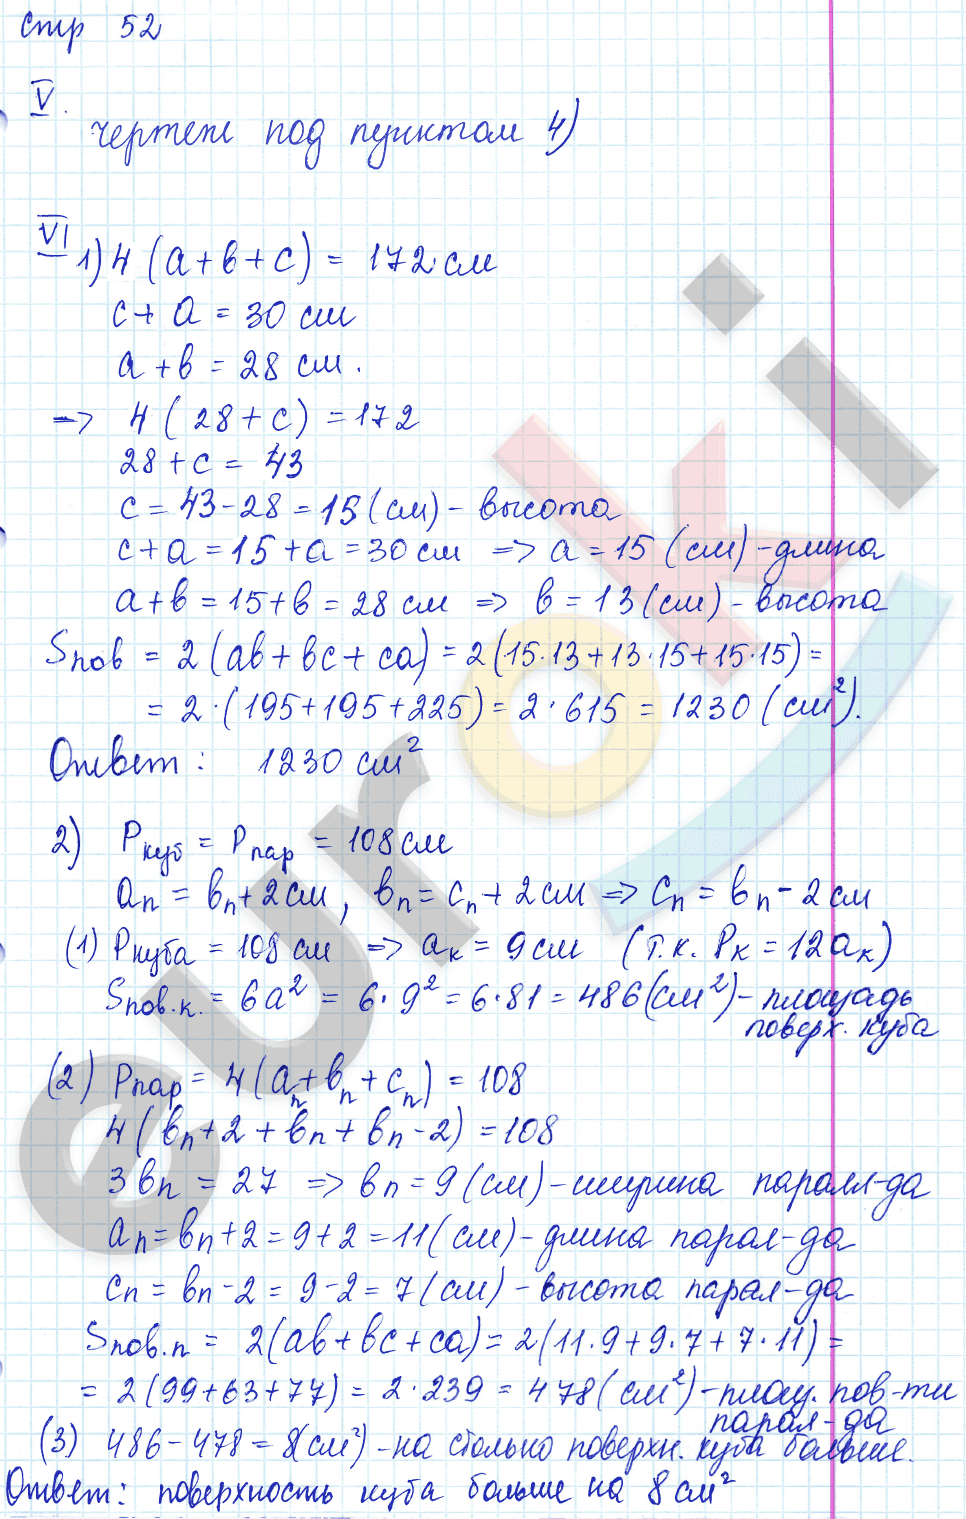 стр 52
V.
чертеж под пунктом 4)
VI
1) 4 (a + b + c) = 172 см
c + a = 30 см
a + b = 28 см.
=> 4 ( 28 + c) = 172
28 + c = 43
c = 43 - 28 = 15 (см) - высота
c + a = 15 + a = 30 см => a = 15 (см) - длина
a + b = 15 + b = 28 см => b = 13 (см) - высота
Sпов = 2 (ab + bc + ca) = 2 (15·13 + 13·15 + 15·15) =
= 2·(195 + 195 + 225) = 2·615 = 1230 (см²).
Ответ: 1230 см²
2) Pкуб = Pпар = 108 см
aп = bп + 2 см, bп = cп + 2 см => cп = bп - 2 см
(1) Pкуба = 108 см => aк = 9 см (т.к. Pк = 12aк)
Sпов.к. = 6a² = 6·9² = 6·81 = 486 (см²) - площадь
поверх. куба
(2) Pпар = 4 (aп + bп + cп) = 108
4 (bп + 2 + bп + bп - 2) = 108
3bп = 27 => bп = 9 (см) - ширина паралл-да
aп = bп + 2 = 9 + 2 = 11 (см) - длина парал-да
cп = bп - 2 = 9 - 2 = 7 (см) - высота парал-да
Sпов.п = 2 (ab + bc + ca) = 2 (11·9 + 9·7 + 7·11) =
= 2 (99 + 63 + 77) = 2·239 = 478 (см²) - площ. пов-ти
парал-да
(3) 486 - 478 = 8 (см²) - на столько поверхн. куба больше.
Ответ: поверхность куба больше на 8 см²
euroki